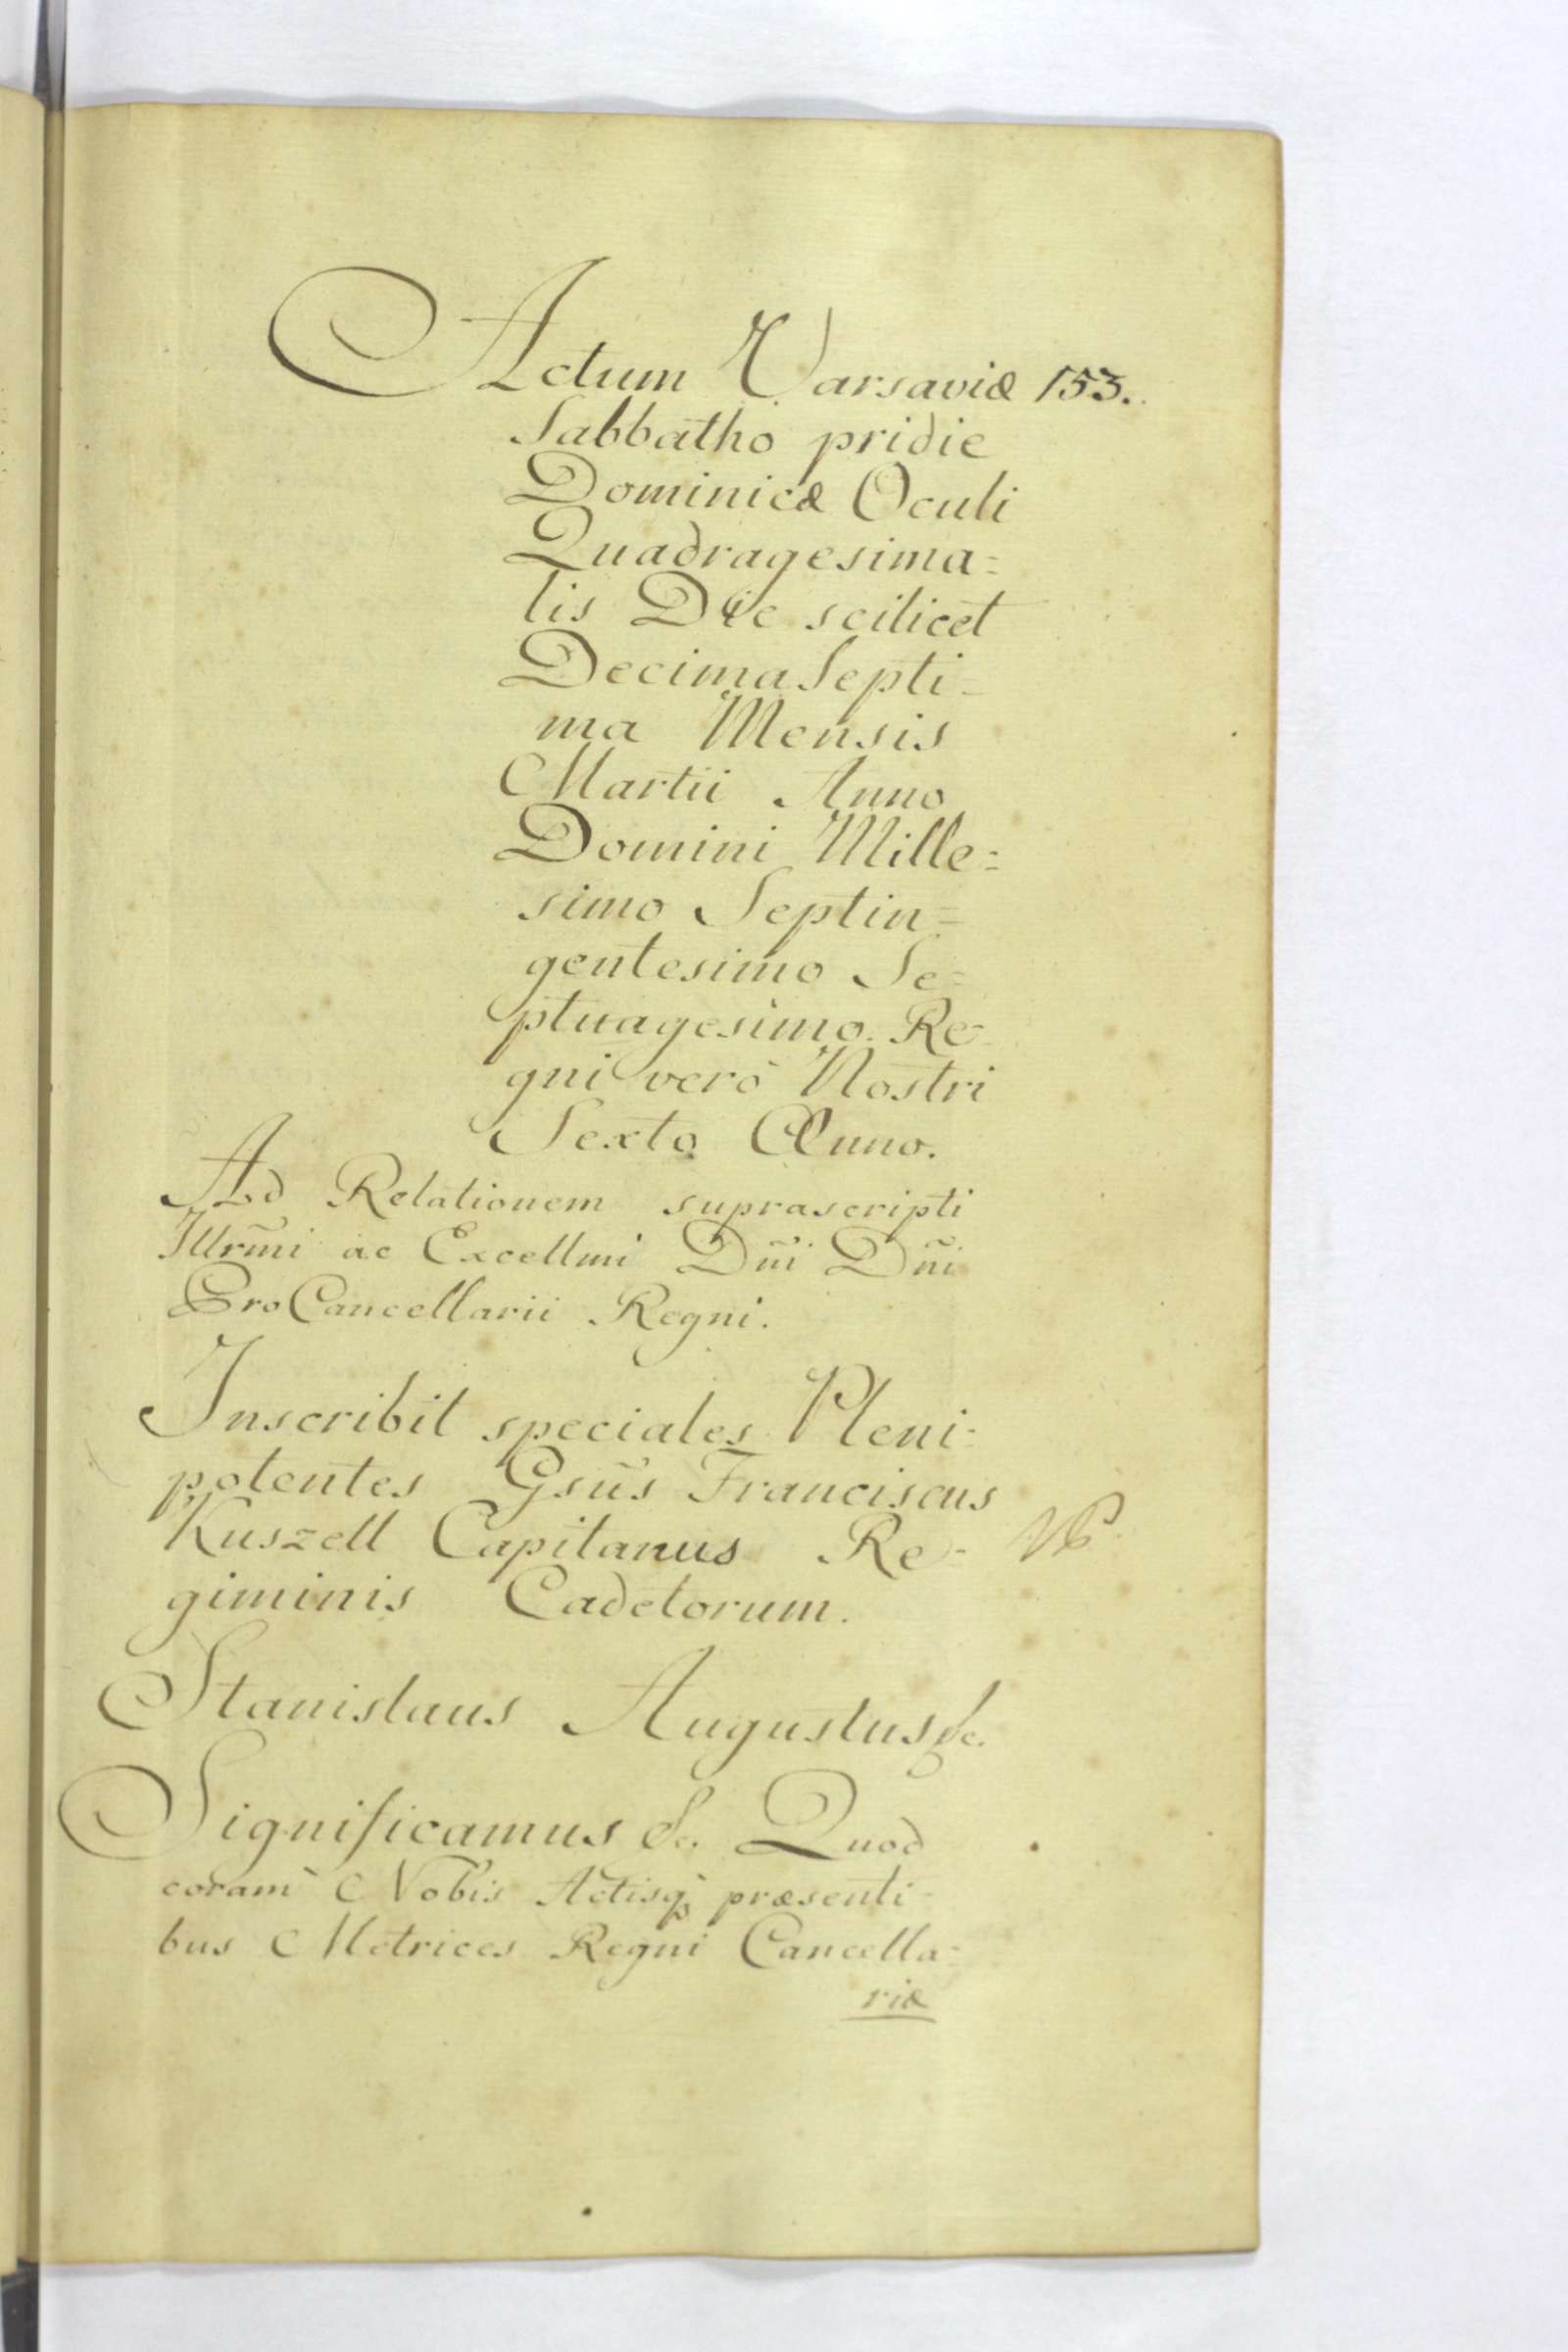 Actum Varsaviæ 153.
Sabbatho pridie
Dominicæ Oculi
Quadragesima=
lis Die scilicet
Decima Septi=
ma Mensis
Martii Anno
Domini Mille=
simo Septin=
gentesimo Se=
ptuagesimo. Re-
gni verò Nostri
Sexto Anno.
Ad Relationem suprascripti
Illrm̃i ac Excellmi Dñi Dñi
ProCancellarii Regni.
Inscribit speciales Pleni=
potentes Gsũs Franciscus
Kuszell Capitanus Re-
giminis Cadetorum.
Stanislaus Augustus &c.
Significamus &c. Quod
coram Nobis Actisq; præsenti-
bus Metrices Regni Cancella=
riæ